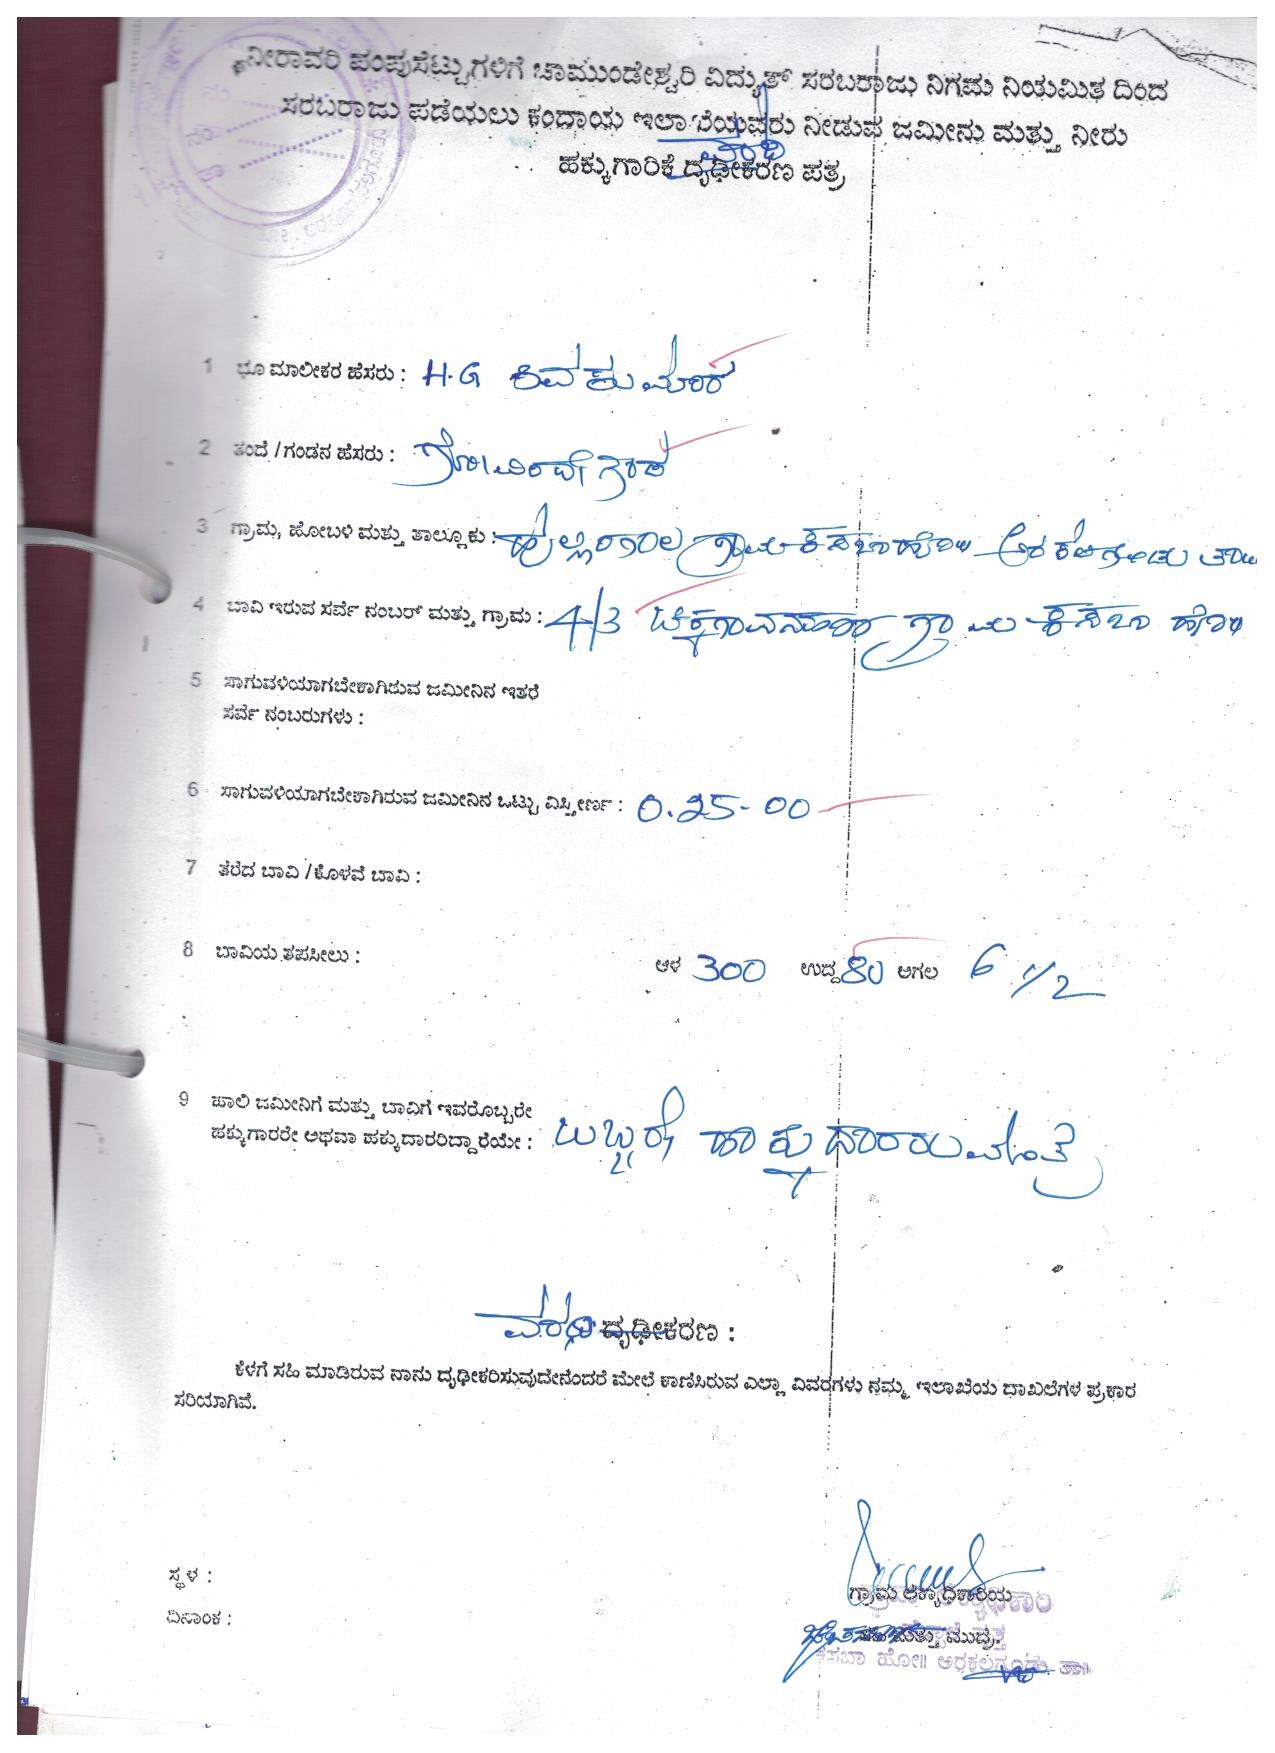 ನೀರಾವರಿ ಪಂಪುಸೆಟ್ಟುಗಳಿಗೆ ಚಾಮುಂಡೇಶ್ವರಿ ವಿದ್ಯುತ್ ಸರಬರಾಜು ನಿಗಮ ನಿಯಮಿತ ದಿಂದ
ಸರಬರಾಜು ಪಡೆಯಲು ಕಂದಾಯ ಇಲಾಖೆಯವರು ನೀಡುವ ಜಮೀನು ಮತ್ತು ನೀರು
ಹಕ್ಕುಗಾರಿಕೆ ದೃಢೀಕರಣ ಪತ್ರ
1 ಭೂ ಮಾಲೀಕರ ಹೆಸರು : H.G ಶಿವಕುಮಾರ
2 ತಂದೆ / ಗಂಡನ ಹೆಸರು : ಗೋವಿಂದೇಗೌಡ
3 ಗ್ರಾಮ, ಹೋಬಳಿ ಮತ್ತು ತಾಲ್ಲೂಕು : ಗ್ರಾಮ ಕಸಬಾ ಹೋಬಳಿ ಅರಕಲಗೂಡು ತಾಲ
4 ಬಾವಿ ಇರುವ ಸರ್ವೆ ನಂಬರ್ ಮತ್ತು ಗ್ರಾಮ : 4/3 ಗ್ರಾಮ ಕಸಬಾ ಹೋಬ
5 ಸಾಗುವಳಿಯಾಗಬೇಕಾಗಿರುವ ಜಮೀನಿನ ಇತರೆ
ಸರ್ವೆ ನಂಬರುಗಳು :
6 ಸಾಗುವಳಿಯಾಗಬೇಕಾಗಿರುವ ಜಮೀನಿನ ಒಟ್ಟು ವಿಸ್ತೀರ್ಣ : 0.25-00
7 ತೆರೆದ ಬಾವಿ / ಕೊಳವೆ ಬಾವಿ :
8 ಬಾವಿಯ ತಪಸೀಲು : ಆಳ 300 ಉದ್ದ 80 ಅಗಲ 6 1/2
9 ಖಾಲಿ ಜಮೀನಿಗೆ ಮತ್ತು ಬಾವಿಗೆ ಇವರೊಬ್ಬರೇ
ಹಕ್ಕುಗಾರರೇ ಅಥವಾ ಹಕ್ಕುದಾರರಿದ್ದಾರೆಯೇ : ಒಬ್ಬರೇ ಹಕ್ಕುದಾರರು
ವರದಿ ದೃಢೀಕರಣ :
ಕೆಳಗೆ ಸಹಿ ಮಾಡಿರುವ ನಾನು ದೃಢೀಕರಿಸುವುದೇನೆಂದರೆ ಮೇಲೆ ಕಾಣಿಸಿರುವ ಎಲ್ಲಾ ವಿವರಗಳು ನಮ್ಮ ಇಲಾಖೆಯ ದಾಖಲೆಗಳ ಪ್ರಕಾರ
ಸರಿಯಾಗಿವೆ.
ಸ್ಥಳ :
ದಿನಾಂಕ :
ಗ್ರಾಮ ಲೆಕ್ಕಾಧಿಕಾರಿಯ
ಸಹಿ ಮತ್ತು ಮುದ್ರೆ.
ಕಸಬಾ ಹೋ॥ ಅರಕಲಗೂಡು ತಾ॥